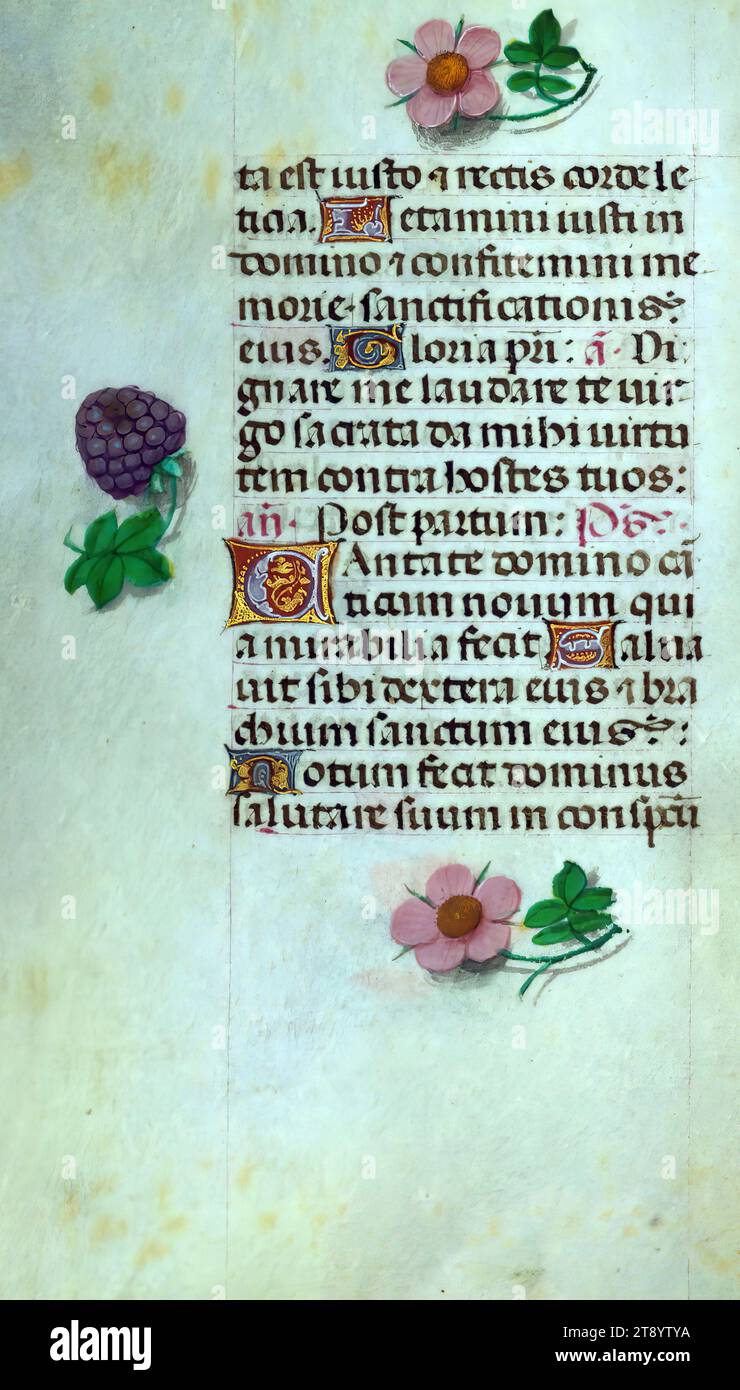 ta est iusto ⁊ rectis corde le
ticia. Letamini iusti in
domino ⁊ confitemini me
morie sanctificationis
eius. Gloria pr̄i: a̅. Di
gnare me laudare te uir
go sacrata da mihi uirtu
tem contra hostes tuos:
an̄. Post partum: Ps.
CAntate domino cā
ticum nouum qui
a mirabilia fecit Salua
uit sibi dextera eius ⁊ bra
chium sanctum eius:
Notum fecit dominus
salutare suum in conspectu
alamy
alamy
Image ID: 2T8YTYA
www.alamy.com